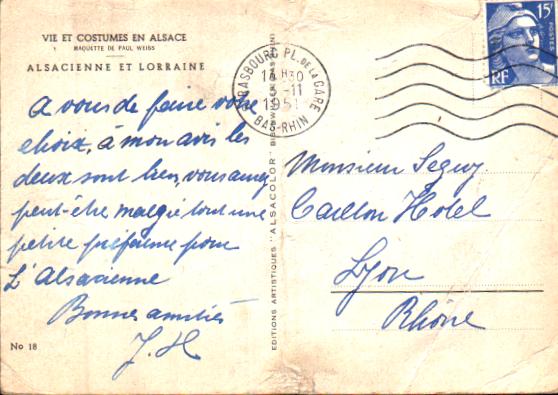 VIE ET COSTUMES EN ALSACE
MAQUETTE DE PAUL WEISS
ALSACIENNE ET LORRAINE
A vous de faire votre
choix, à mon avis les
deux sont bien, vous aurez
peut-être malgré tout une
petite préférence pour
L'Alsacienne
Bonnes amitiés
J. H
No 18
EDITIONS ARTISTIQUES "ALSACOLOR"
STRASBOURG PL. DE LA GARE
14 H30
-11
1951
BAS-RHIN
15F
RF
Monsieur Seguy
Carlton Hotel
Lyon
Rhône